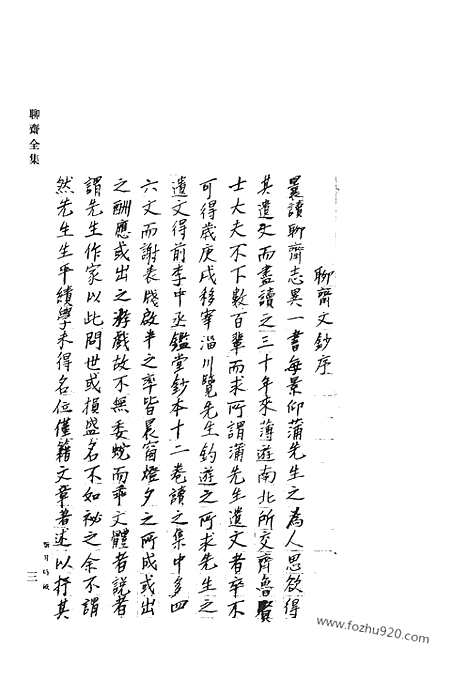 聊齋全集
聊齋文鈔序
曩讀聊齋志異一書每景仰蒲先生之為人思欲得
其遺文而盡讀之三十年來薄遊南北所交齊魯賢
士大夫不下數百輩而求所謂蒲先生遺文者卒不
可得歲庚戌移宰淄川覽先生釣遊之所求先生之
遺文得前李中丞鑑堂鈔本十二卷讀之集中多四
六文而謝表牋啟半之率皆晨窗燈夕之所成或出
之酬應或出之游戲故不無委蛇而乖文體者説者
謂先生作家以此問世或損盛名不如祕之余不謂
然先生生平績學未得名位僅藉文章著述以抒其
三
www.fozhu920.com